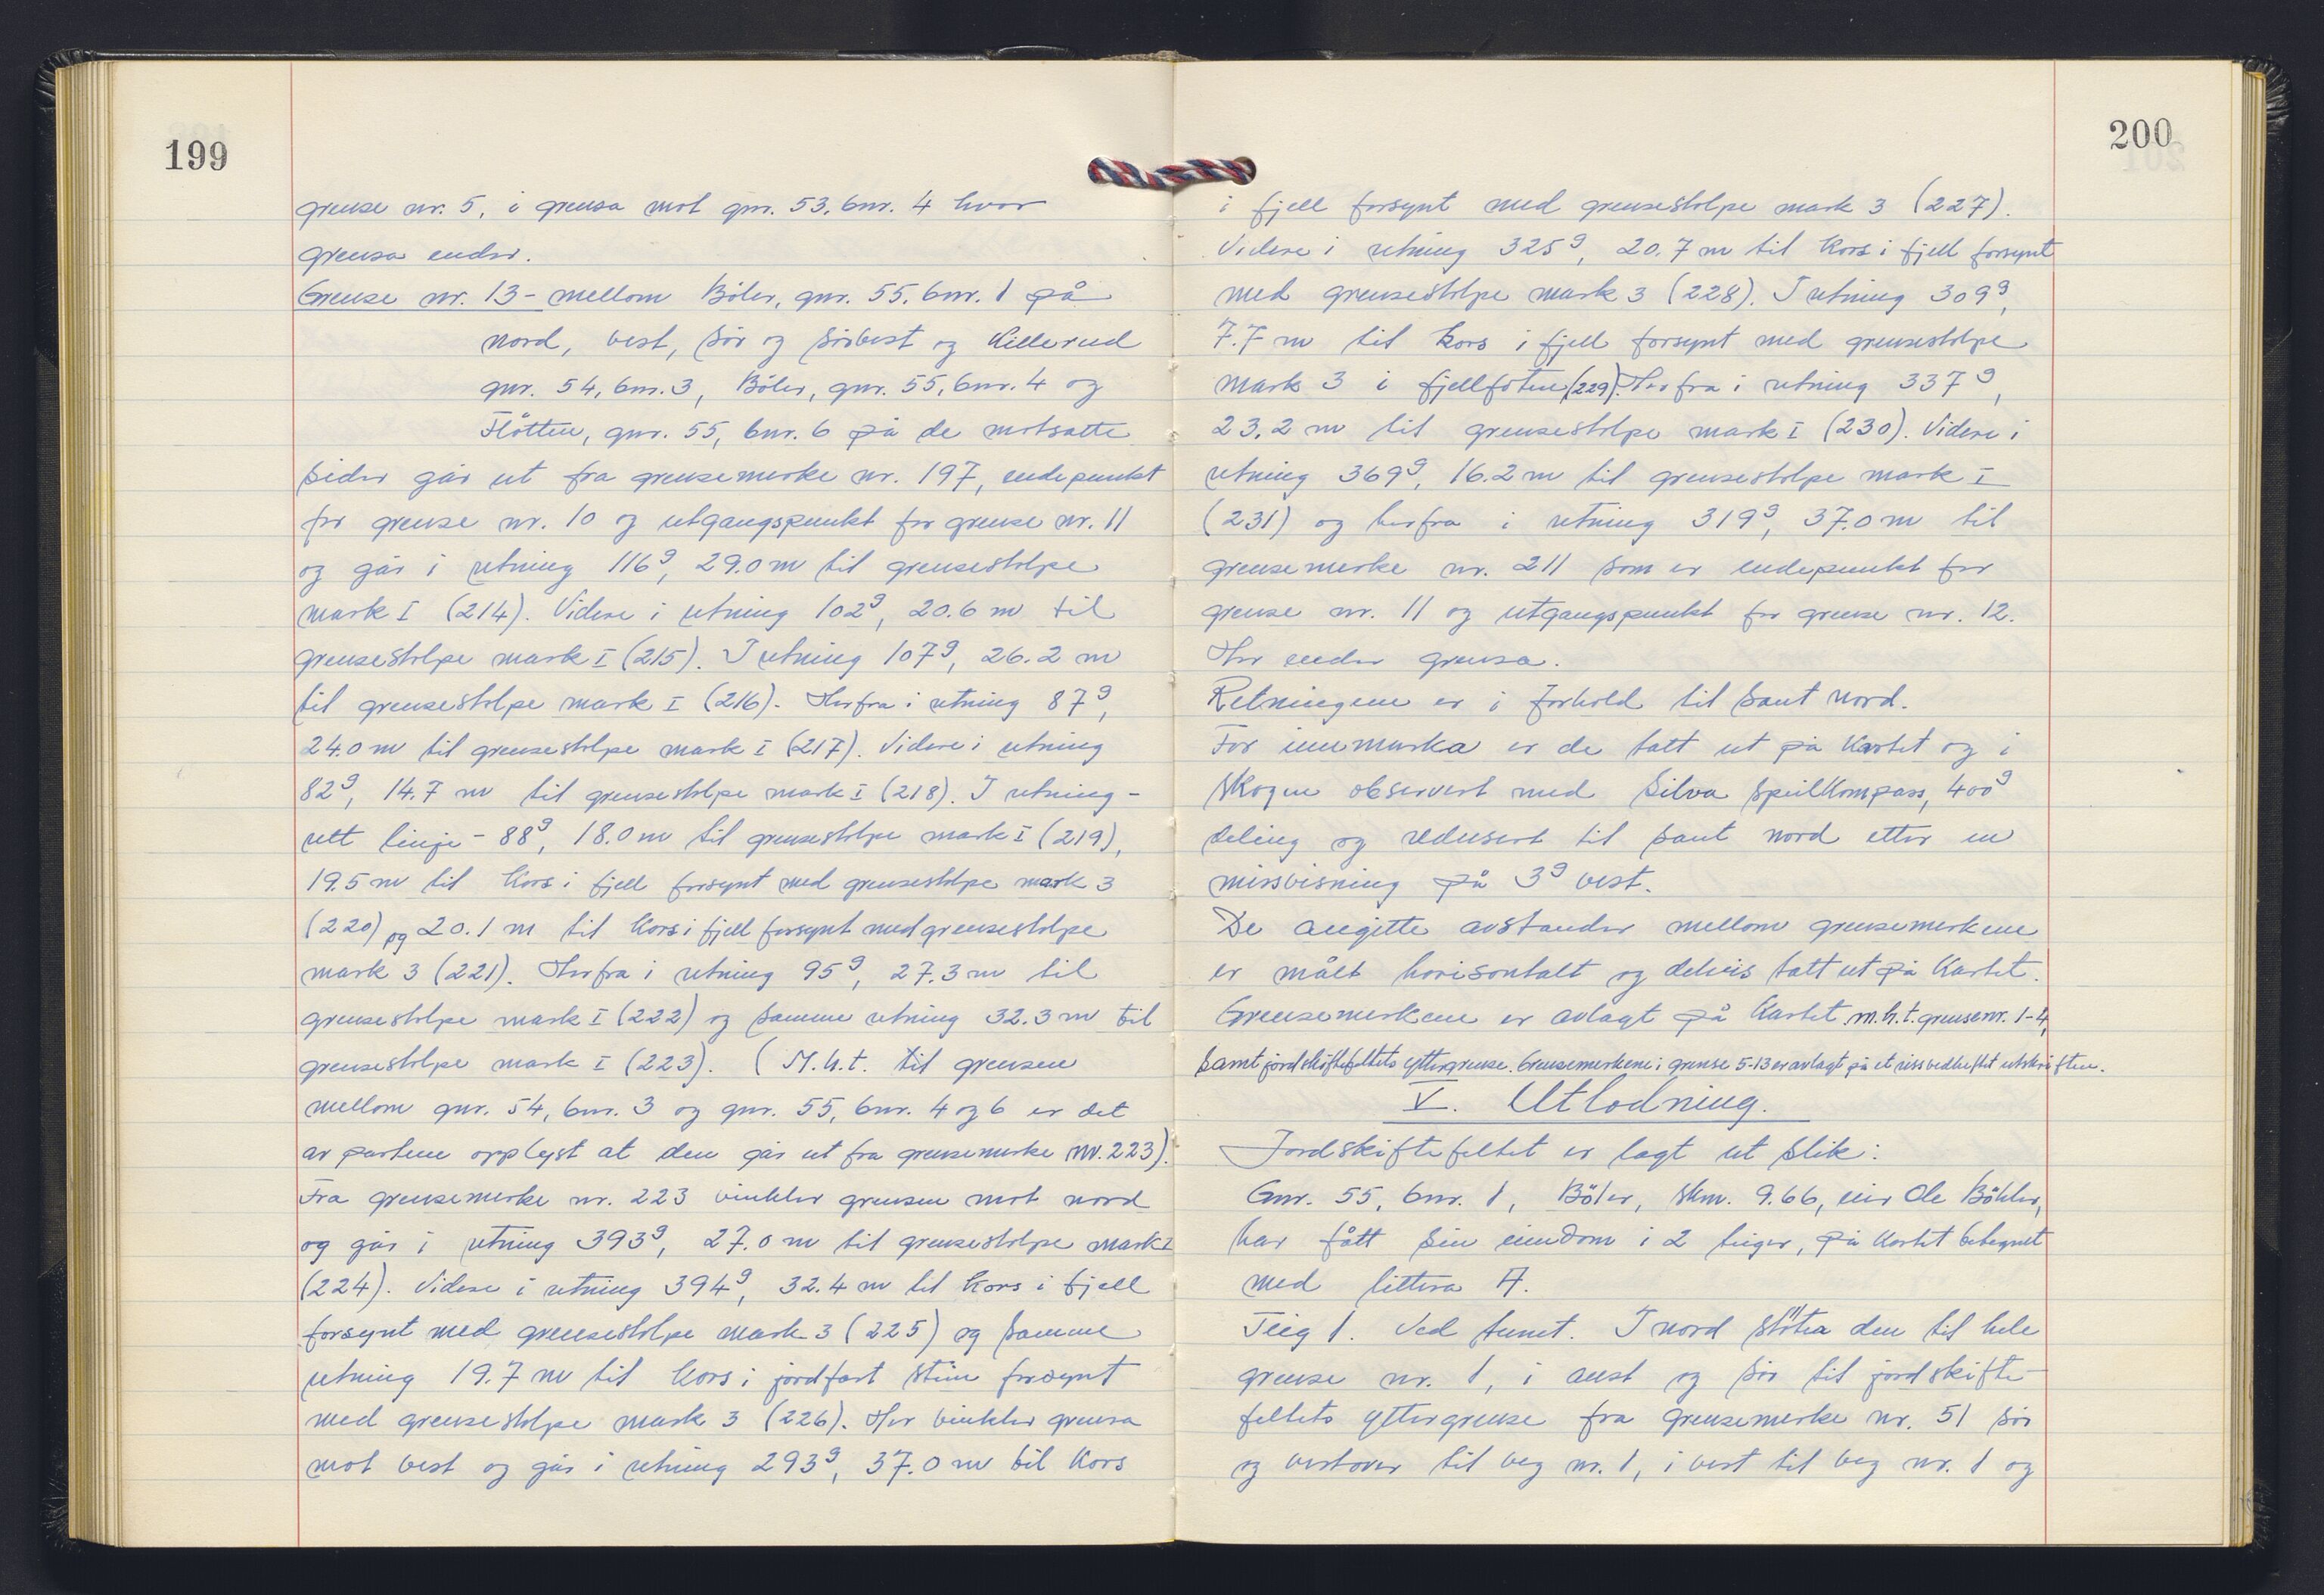 199
grense nr. 5, i grensa mot gnr. 53, bnr. 4 hvor
grensa ender.
Grense nr. 13 - mellom Böler, gnr. 55, bnr. 1 på
nord, vest, sör og sörvest og Killerud
gnr. 54, bnr. 3, Böler, gnr. 55, bnr. 4 og
Flåtten, gnr. 55, bnr. 6 på de motsatte
sider går ut fra grensemerke nr. 197, endepunkt
for grense nr. 10 og utgangspunkt for grense nr. 11
og går i retning 116g, 29.0 m til grensestolpe
mark I (214). Videre i retning 102g, 20.6 m til
grensestolpe mark I (215). I retning 107g, 26.2 m
til grensestolpe mark I (216). Herfra i retning 87g,
24.0 m til grensestolpe mark I (217). Videre i retning
82g, 14.7 m til grensestolpe mark I (218). I retning -
rett linje - 88g, 18.0 m til grensestolpe mark I (219),
19.5 m til kors i fjell forsynt med grensestolpe mark 3
(220) og 20.1 m til kors i fjell forsynt med grensestolpe
mark 3 (221). Herfra i retning 95g, 27.3 m til
grensestolpe mark I (222) og samme retning 32.3 m til
grensestolpe mark I (223). (M.h.t. til grensen
mellom gnr. 54, bnr. 3 og gnr. 55, bnr. 4 og 6 er det
av partene opplyst at den går ut fra grensemerke nr. 223).
Fra grensemerke nr. 223 vinkler grensen mot nord
og går i retning 393g, 27.0 m til grensestolpe mark I
(224). Videre i retning 394g, 32.4 m til kors i fjell
forsynt med grensestolpe mark 3 (225) og samme
retning 19.7 m til kors i jordfast stein forsynt
med grensestolpe mark 3 (226). Her vinkler grensa
mot vest og går i retning 293g, 37.0 m til kors
200
i fjell forsynt med grensestolpe mark 3 (227).
Videre i retning 325g, 20.7 m til kors i fjell forsynt
med grensestolpe mark 3 (228). I retning 309g,
7.7 m til kors i fjell forsynt med grensestolpe
mark 3 i fjellfoten (229). Herfra i retning 337g,
23.2 m til grensestolpe mark I (230). Videre i
retning 369g, 16.2 m til grensestolpe mark I
(231) og herfra i retning 319g, 37.0 m til
grensemerke nr. 211 som er endepunkt for
grense nr. 11 og utgangspunkt for grense nr. 12.
Her ender grensa.
Retningene er i forhold til sant nord.
For innmarka er de tatt ut på kartet og i
skogen observert med Silva speilkompass, 400g
deling og redusert til sant nord etter en
missvisning på 3g vest.
De angitte avstander mellom grensemerkene
er målt horisontalt og delvis tatt ut på kartet.
Grensemerkene er avlagt på kartet m.h.t. grense nr. 1-4,
samt jordskiftefeltets yttergrense. Grensemerkene i grense 5-13 er avlagt på et riss vedheftet utskriften.
V. Utlodning.
Jordskiftefeltet er lagt ut slik:
Gnr. 55, bnr. 1, Böler, skm. 9.66, eier Ole Böhler,
har fått sin eiendom i 2 teiger, på kartet betegnet
med littera A.
Teig 1. Ved tunet. I nord støter den til hele
grense nr. 1, i aust og sör til jordskifte-
feltets yttergrense fra grensemerke nr. 51 sör
og vestover til veg nr. 1, i vest til veg nr. 1 og